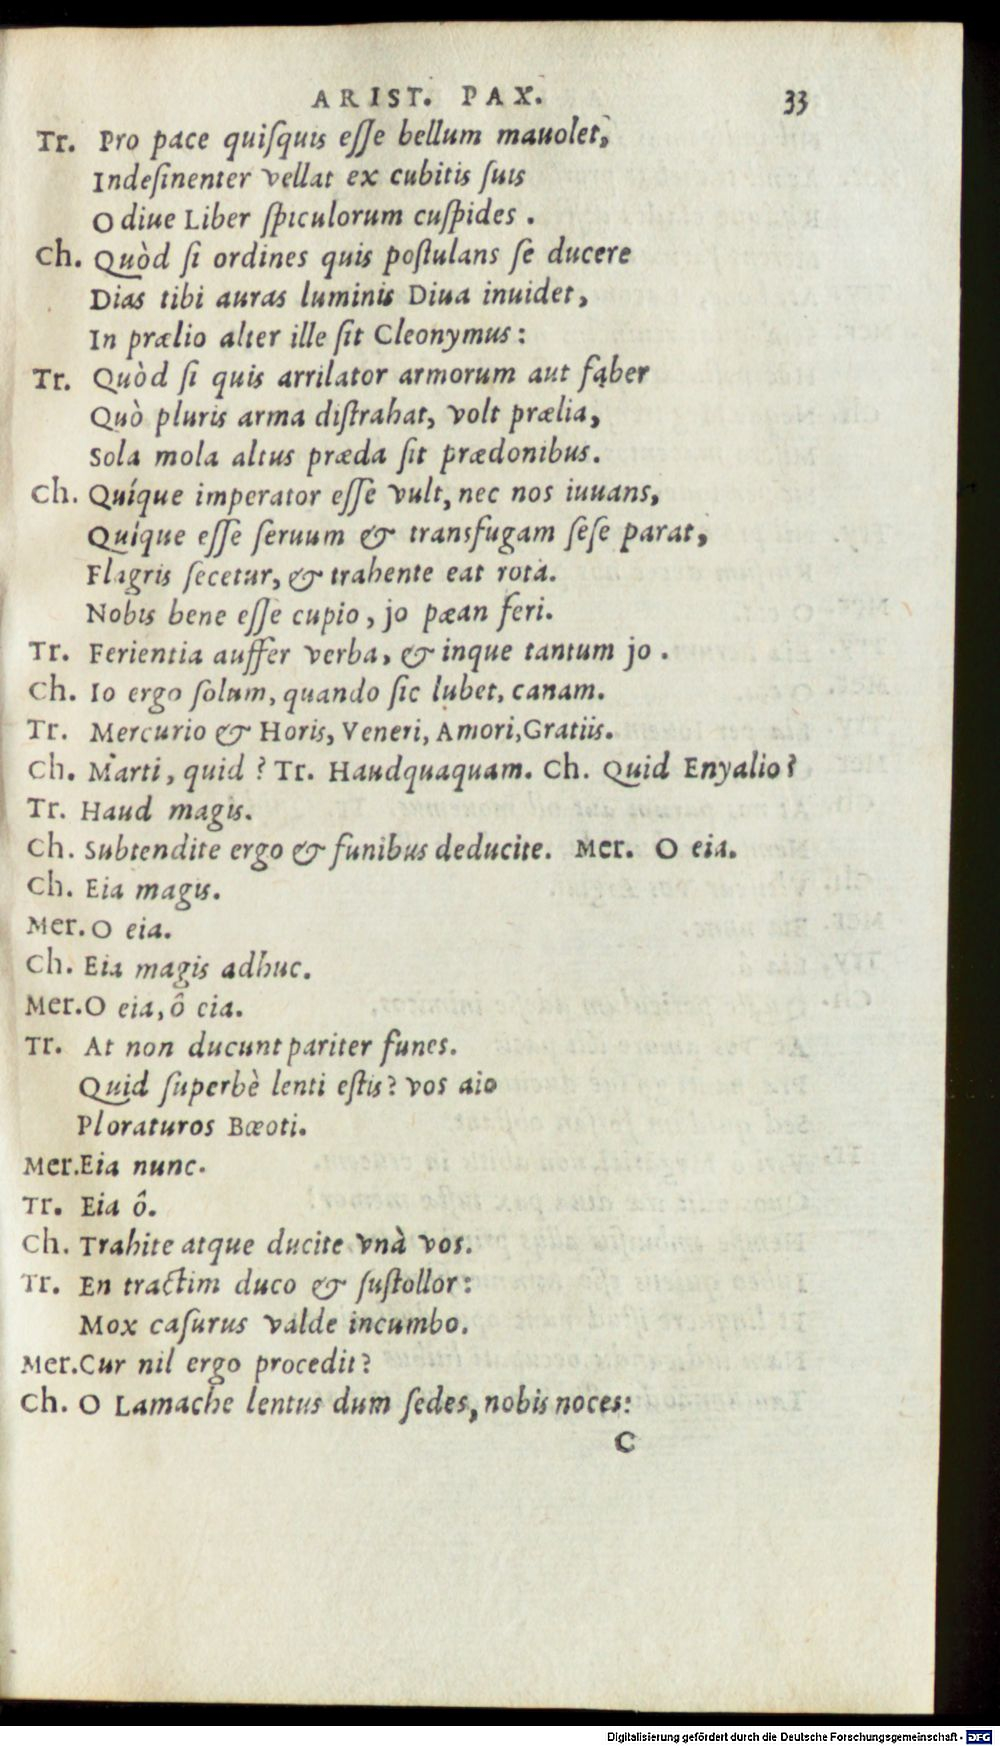 ARIST. PAX. 33
Tr. Pro pace quiſquis eſſe bellum mauolet,
Indeſinenter vellat ex cubitis ſuis
O diue Liber ſpiculorum cuſpides .
Ch. Quòd ſi ordines quis poſtulans ſe ducere
Dias tibi auras luminis Diua inuidet,
In prælio alter ille ſit Cleonymus:
Tr. Quòd ſi quis arrilator armorum aut faber
Quò pluris arma diſtrahat, volt prælia,
Sola mola altus præda ſit prædonibus.
Ch. Quíque imperator eſſe vult, nec nos iuuans,
Quíque eſſe ſeruum & transfugam ſeſe parat,
Flagris ſecetur, & trahente eat rota.
Nobis bene eſſe cupio, jo pæan feri.
Tr. Ferientia auffer verba, & inque tantum jo .
Ch. Io ergo ſolum, quando ſic lubet, canam.
Tr. Mercurio & Horis, Veneri, Amori, Gratiis.
Ch. Marti, quid? Tr. Haudquaquam. Ch. Quid Enyalio?
Tr. Haud magis.
Ch. Subtendite ergo & funibus deducite. Mer. O eia.
Ch. Eia magis.
Mer. O eia.
Ch. Eia magis adhuc.
Mer. O eia, ô cia.
Tr. At non ducunt pariter funes.
Quid ſuperbè lenti eſtis? vos aio
Ploraturos Bœoti.
Mer. Eia nunc.
Tr. Eia ô.
Ch. Trahite atque ducite vnà vos.
Tr. En tractim duco & ſuſtollor:
Mox caſurus valde incumbo.
Mer. Cur nil ergo procedit?
Ch. O Lamache lentus dum ſedes, nobis noces:
C
Digitalisierung gefördert durch die Deutsche Forschungsgemeinschaft - DFG